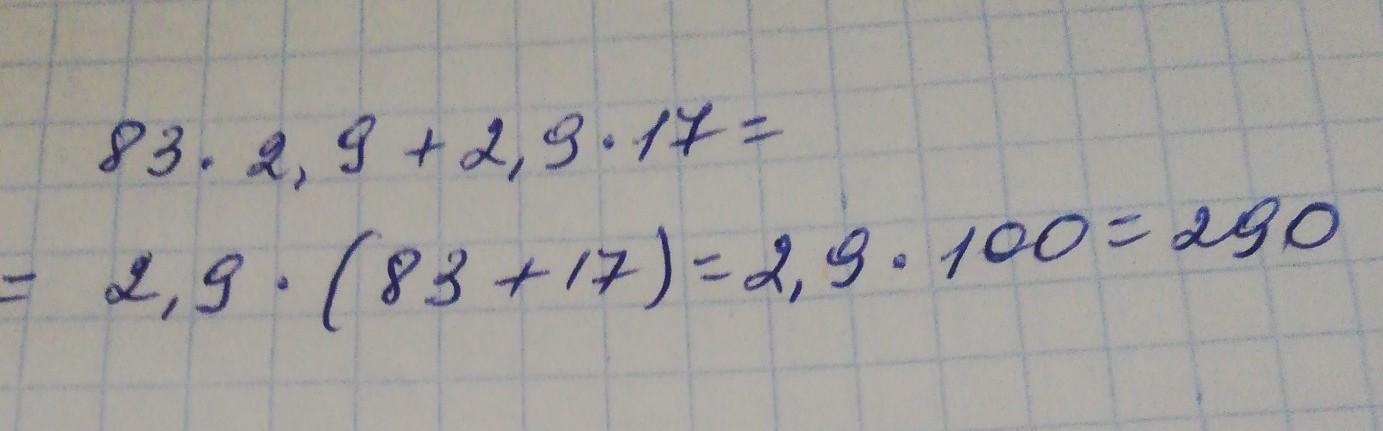 83 · 2,9 + 2,9 · 17 =
= 2,9 · (83 + 17) = 2,9 · 100 = 290